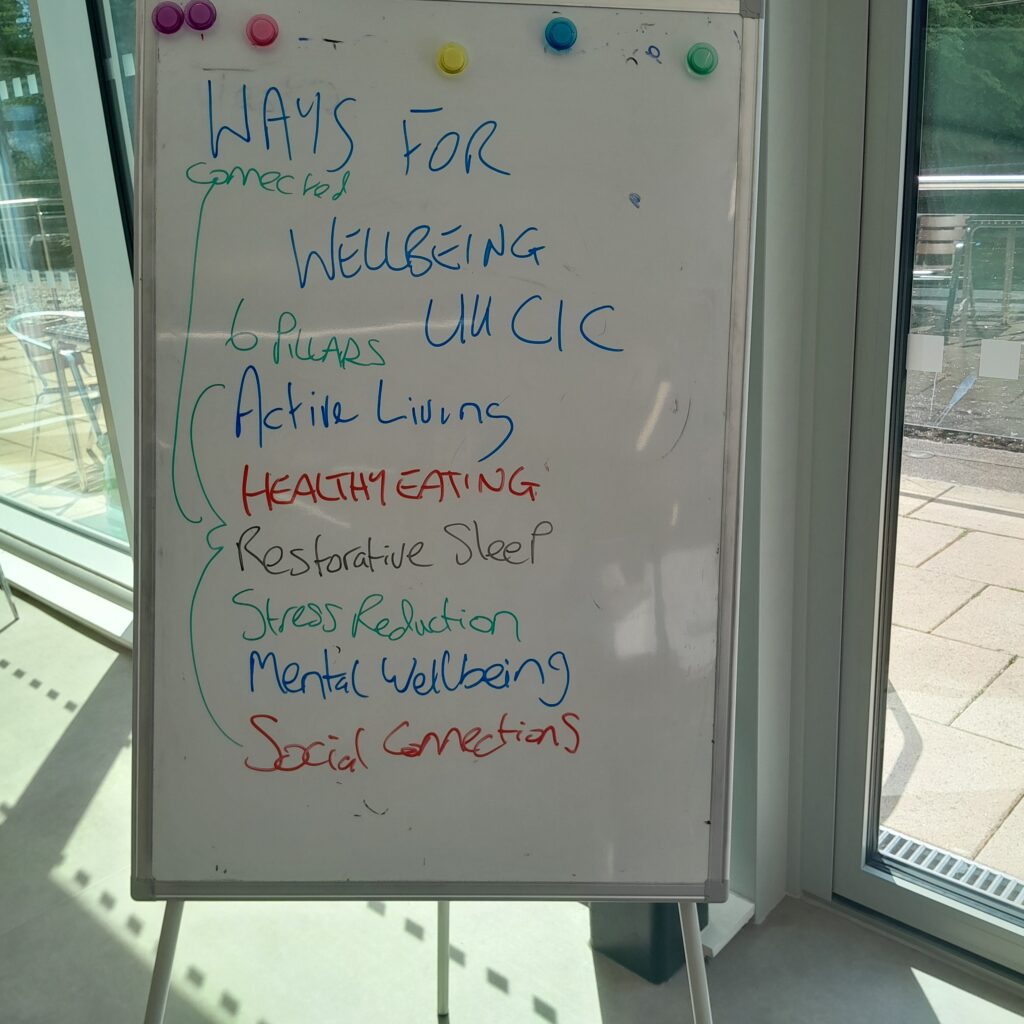 WAYS FOR
connected
WELLBEING
UK CIC
6 PILLARS
Active Living
HEALTHY EATING
Restorative Sleep
Stress Reduction
Mental Wellbeing
Social Connections